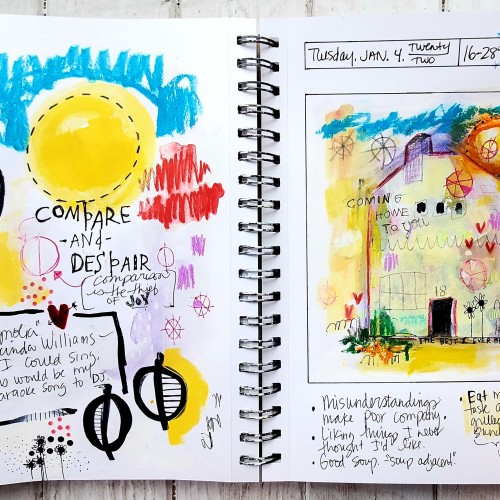 COMPARE
-AND-
DESPAIR
comparison
is the thief
of JOY
Williams-
I could sing.
would be my
karaoke song to DJ
TUESDAY. JAN. 4. TWENTY TWO
16-28°
COMING
HOME
TO YOU
18
THE BEST I EVER HA
• Misunderstandings
make poor company.
• Liking things I never
thought I'd like.
• Good soup. "soup adjacent".
• Eat m
task
grilled